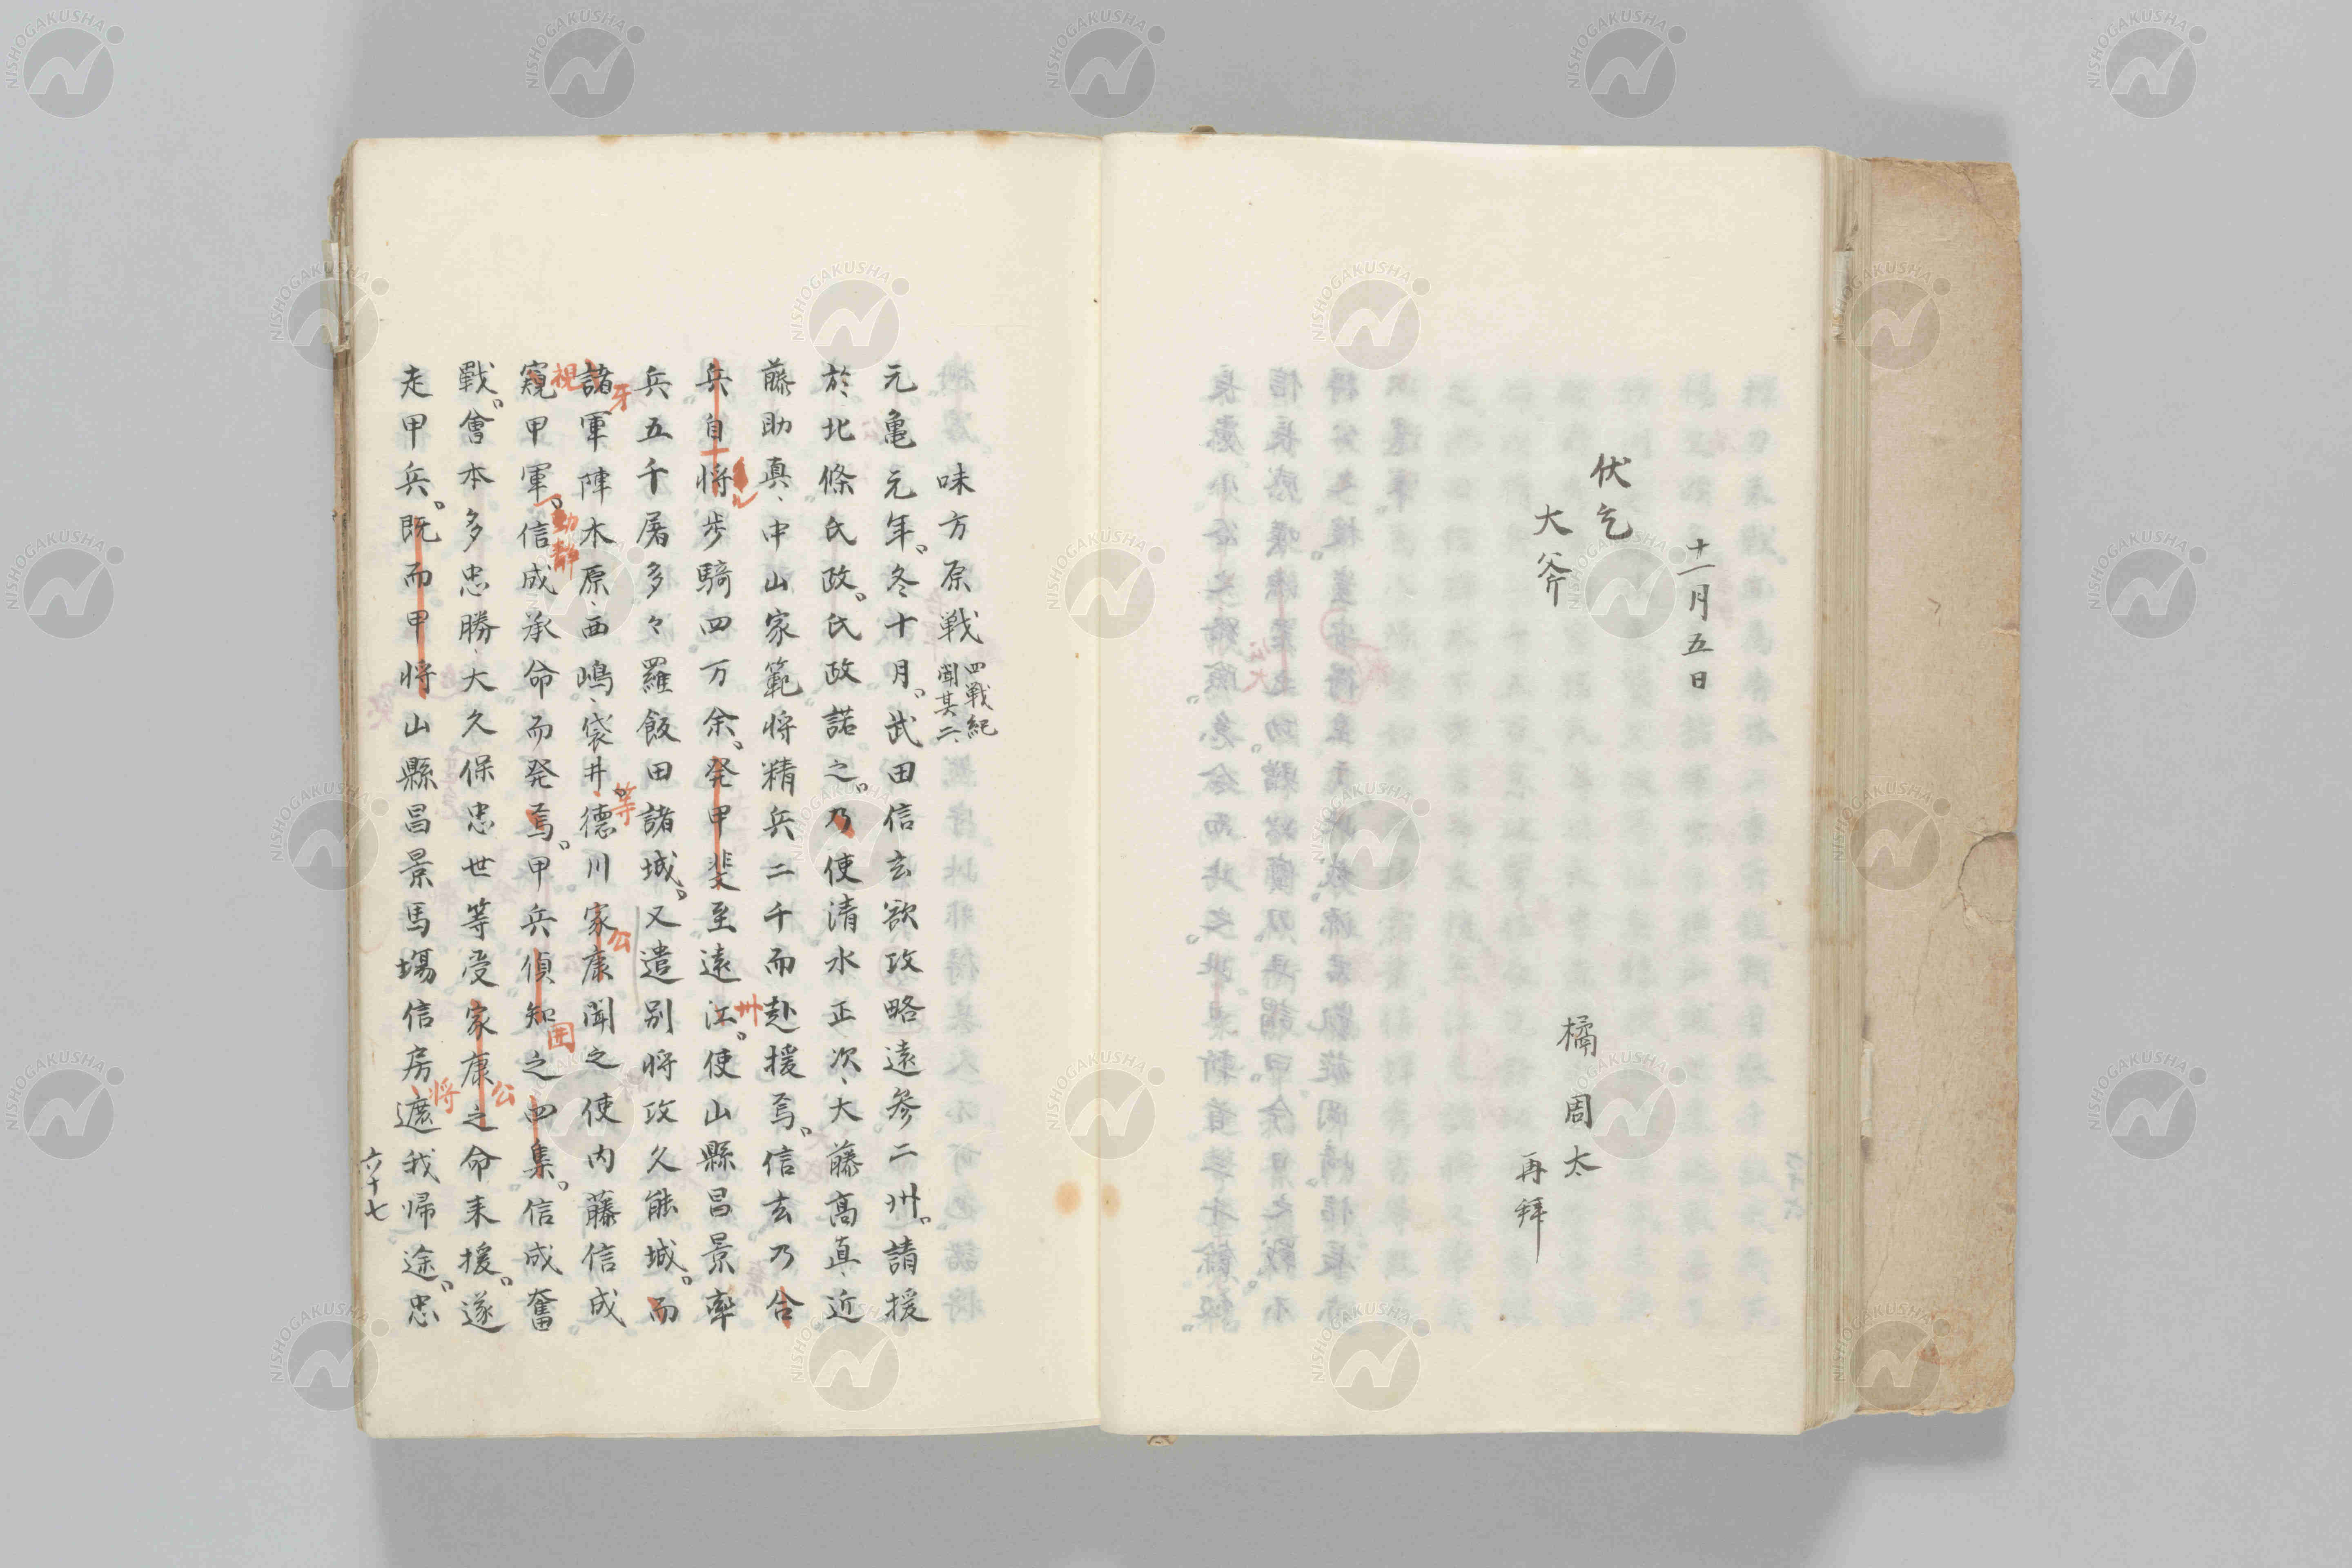 十一月五日
伏乞
大斧
橘周太
再拜
味方原戦 四戦紀聞其二
元亀元年。冬十月。武田信玄欲攻略遠参二州。請援
於北條氏政。氏政諾之。乃使清水正次、大藤高真、近
藤助真、中山家範将精兵二千而赴援焉。信玄乃合
兵自将歩騎四万余。発甲斐至遠江。使山縣昌景率
州
兵五千屠多々羅飯田諸城。又遣別将攻久能城。而
諸軍陣木原、西嶋、袋井、徳川家康聞之使内藤信成
牙
等
公
窺甲軍。信成承命而発焉。甲兵偵知之四集。信成奮
視
動静
囲
戰。會本多忠勝、大久保忠世等受家康之命来援。遂
公
走甲兵。既而甲将山縣昌景馬場信房遮我帰途。忠
将
六十七
NISHOGAKUSHA